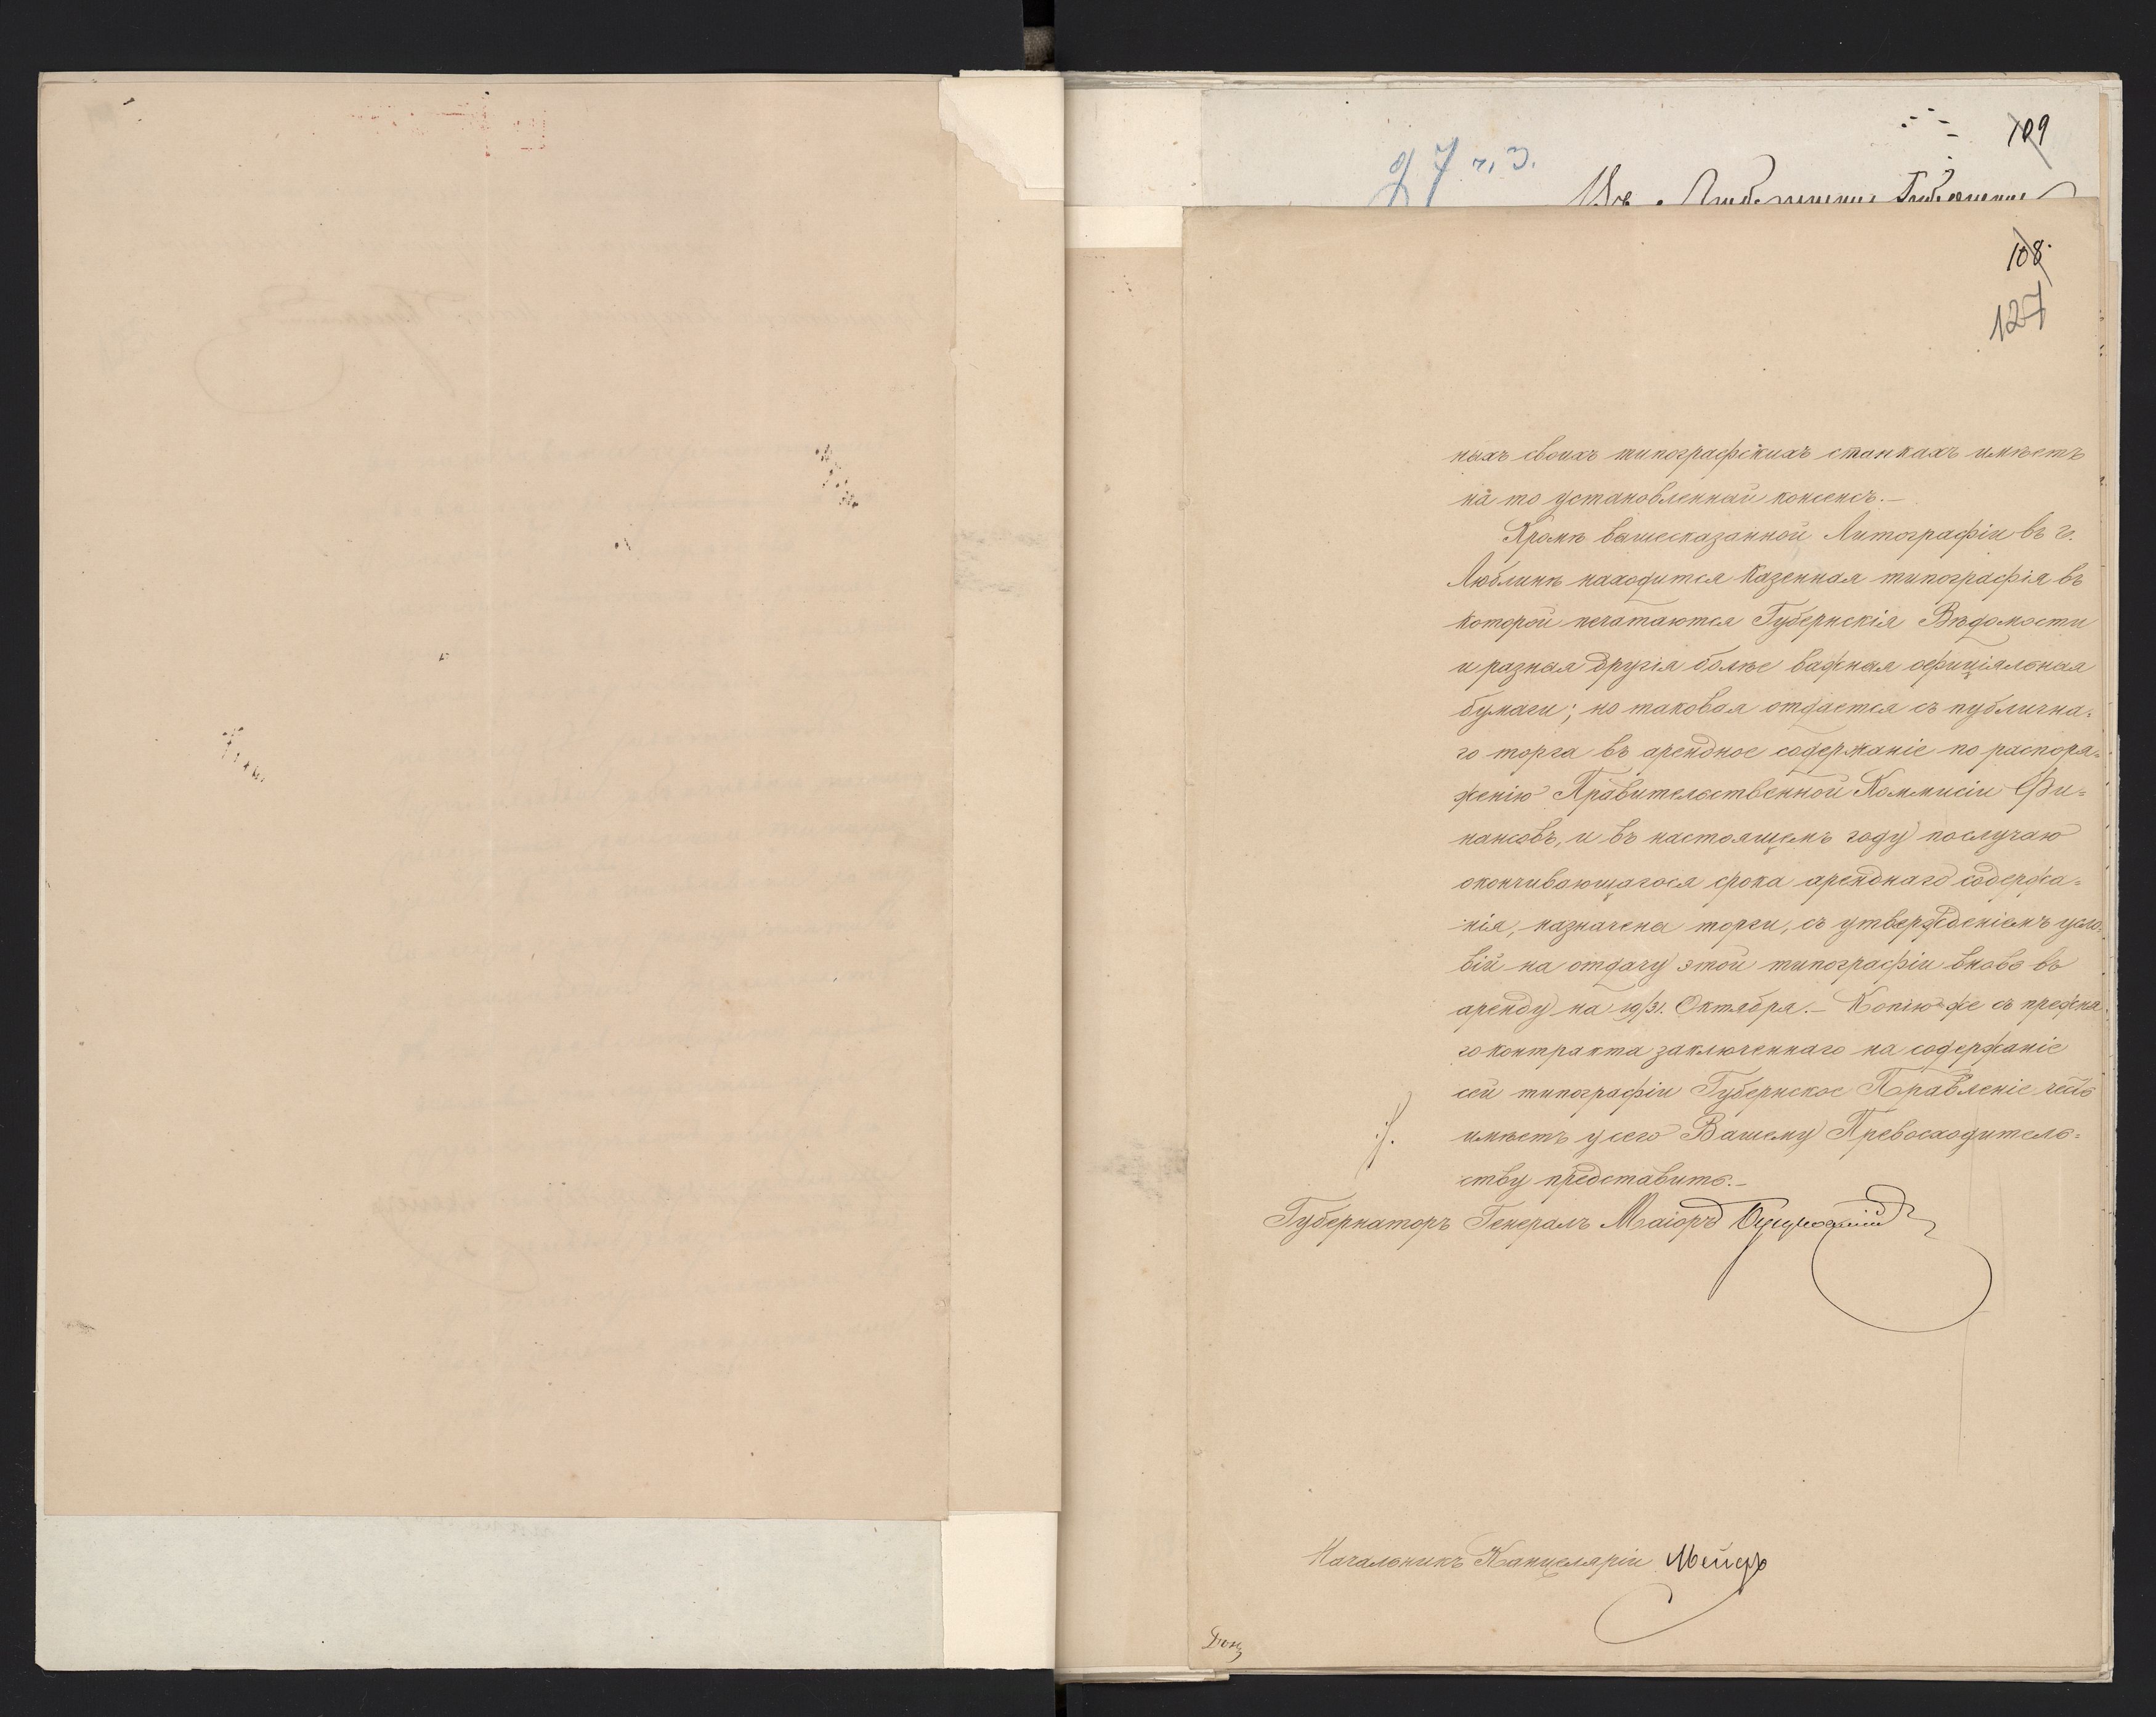 109
27 ч. 3.
108.
127
ныхъ своихъ типографскихъ станкахъ имѣетъ
на то установленный консенсъ.—
Кромѣ вышесказанной Литографіи въ г.
Люблинѣ находится Казенная типографія въ
которой печатаются Губернскія Вѣдомости
и разныя другія болѣе важныя офиціяльныя
бумаги; но таковая отдается съ публична=
го торга въ арендное содержаніе по распоря=
женію Правительственной Коммисіи Фи=
нансовъ, и въ настоящемъ году послучаю
окончивающагося срока аренднаго содержа=
нія, назначены торги, съ утвержденіемъ усло=
вій на отдачу этой типографіи вновь въ
аренду на 19/31. Октября.— Копію же съ прежня=
го контракта заключеннаго на содержаніе
сей типографіи Губернское Правленіе честь
имѣетъ у сего Вашему Превосходитель=
ству представить.—
Губернаторъ Генералъ Маіоръ
Начальникъ Канцеляріи